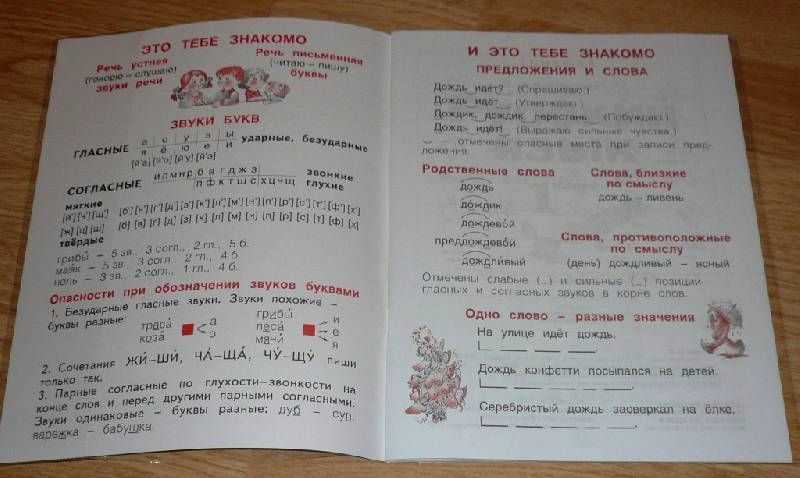 ЭТО ТЕБЕ ЗНАКОМО
Речь устная
(говорю – слушаю)
звуки речи
Речь письменная
(читаю – пишу)
буквы
ЗВУКИ БУКВ
ГЛАСНЫЕ
а о у э ы
я ё ю е и
ударные, безударные
[й'а] [й'о] [й'у] [й'э]
СОГЛАСНЫЕ
й л м н р б в г д ж з
п ф к т ш с х ц ч щ
звонкие
глухие
мягкие
[й'] [ч'] [щ'] [б'] [в'] [г'] [д'] [з'] [к'] [л'] [м'] [н'] [п'] [р'] [с'] [т'] [ф'] [х']
[ж] [ц] [ш] [б] [в] [г] [д] [з] [к] [л] [м] [н] [п] [р] [с] [т] [ф] [х]
твёрдые
грибы́ – 5 зв., 3 согл., 2 гл., 5 б.
маяк – 5 зв., 3 согл., 2 гл., 4 б.
ночь – 3 зв., 2 согл., 1 гл., 4 б.
Опасности при обозначении звуков буквами
1. Безударные гласные звуки. Звуки похожие –
буквы разные:
трава́
коза́
а
о
грибы́
мячи́
и
е
я
2. Сочетания ЖИ́–ШИ́, ЧА́–ЩА́, ЧУ́–ЩУ́ пиши
только так.
3. Парные согласные по глухости–звонкости на
конце слов и перед другими парными согласными.
Звуки одинаковые – буквы разные: дуб – суп,
варежка – бабушка.
И ЭТО ТЕБЕ ЗНАКОМО
ПРЕДЛОЖЕНИЯ И СЛОВА
Дождь идёт? (Спрашиваю.)
Дождь идёт. (Утверждаю.)
Дождик, дождик, перестань. (Побуждаю.)
Дождь идёт! (Выражаю сильные чувства.)
– отмечены опасные места при записи пред-
ложения.
Родственные слова
дождь
дождик
дождево́й
предлождево́й
дождли́вый
Слова, близкие
по смыслу
дождь – ливень
Слова, противоположные
по смыслу
(день) дождливый – ясный
Отмечены слабые (...) и сильные (...) позиции
гласных и согласных звуков в корне слов.
Одно слово – разные значения
На улице идёт дождь.
Дождь конфетти посыпался на детей.
Серебристый дождь засверкал на ёлке.